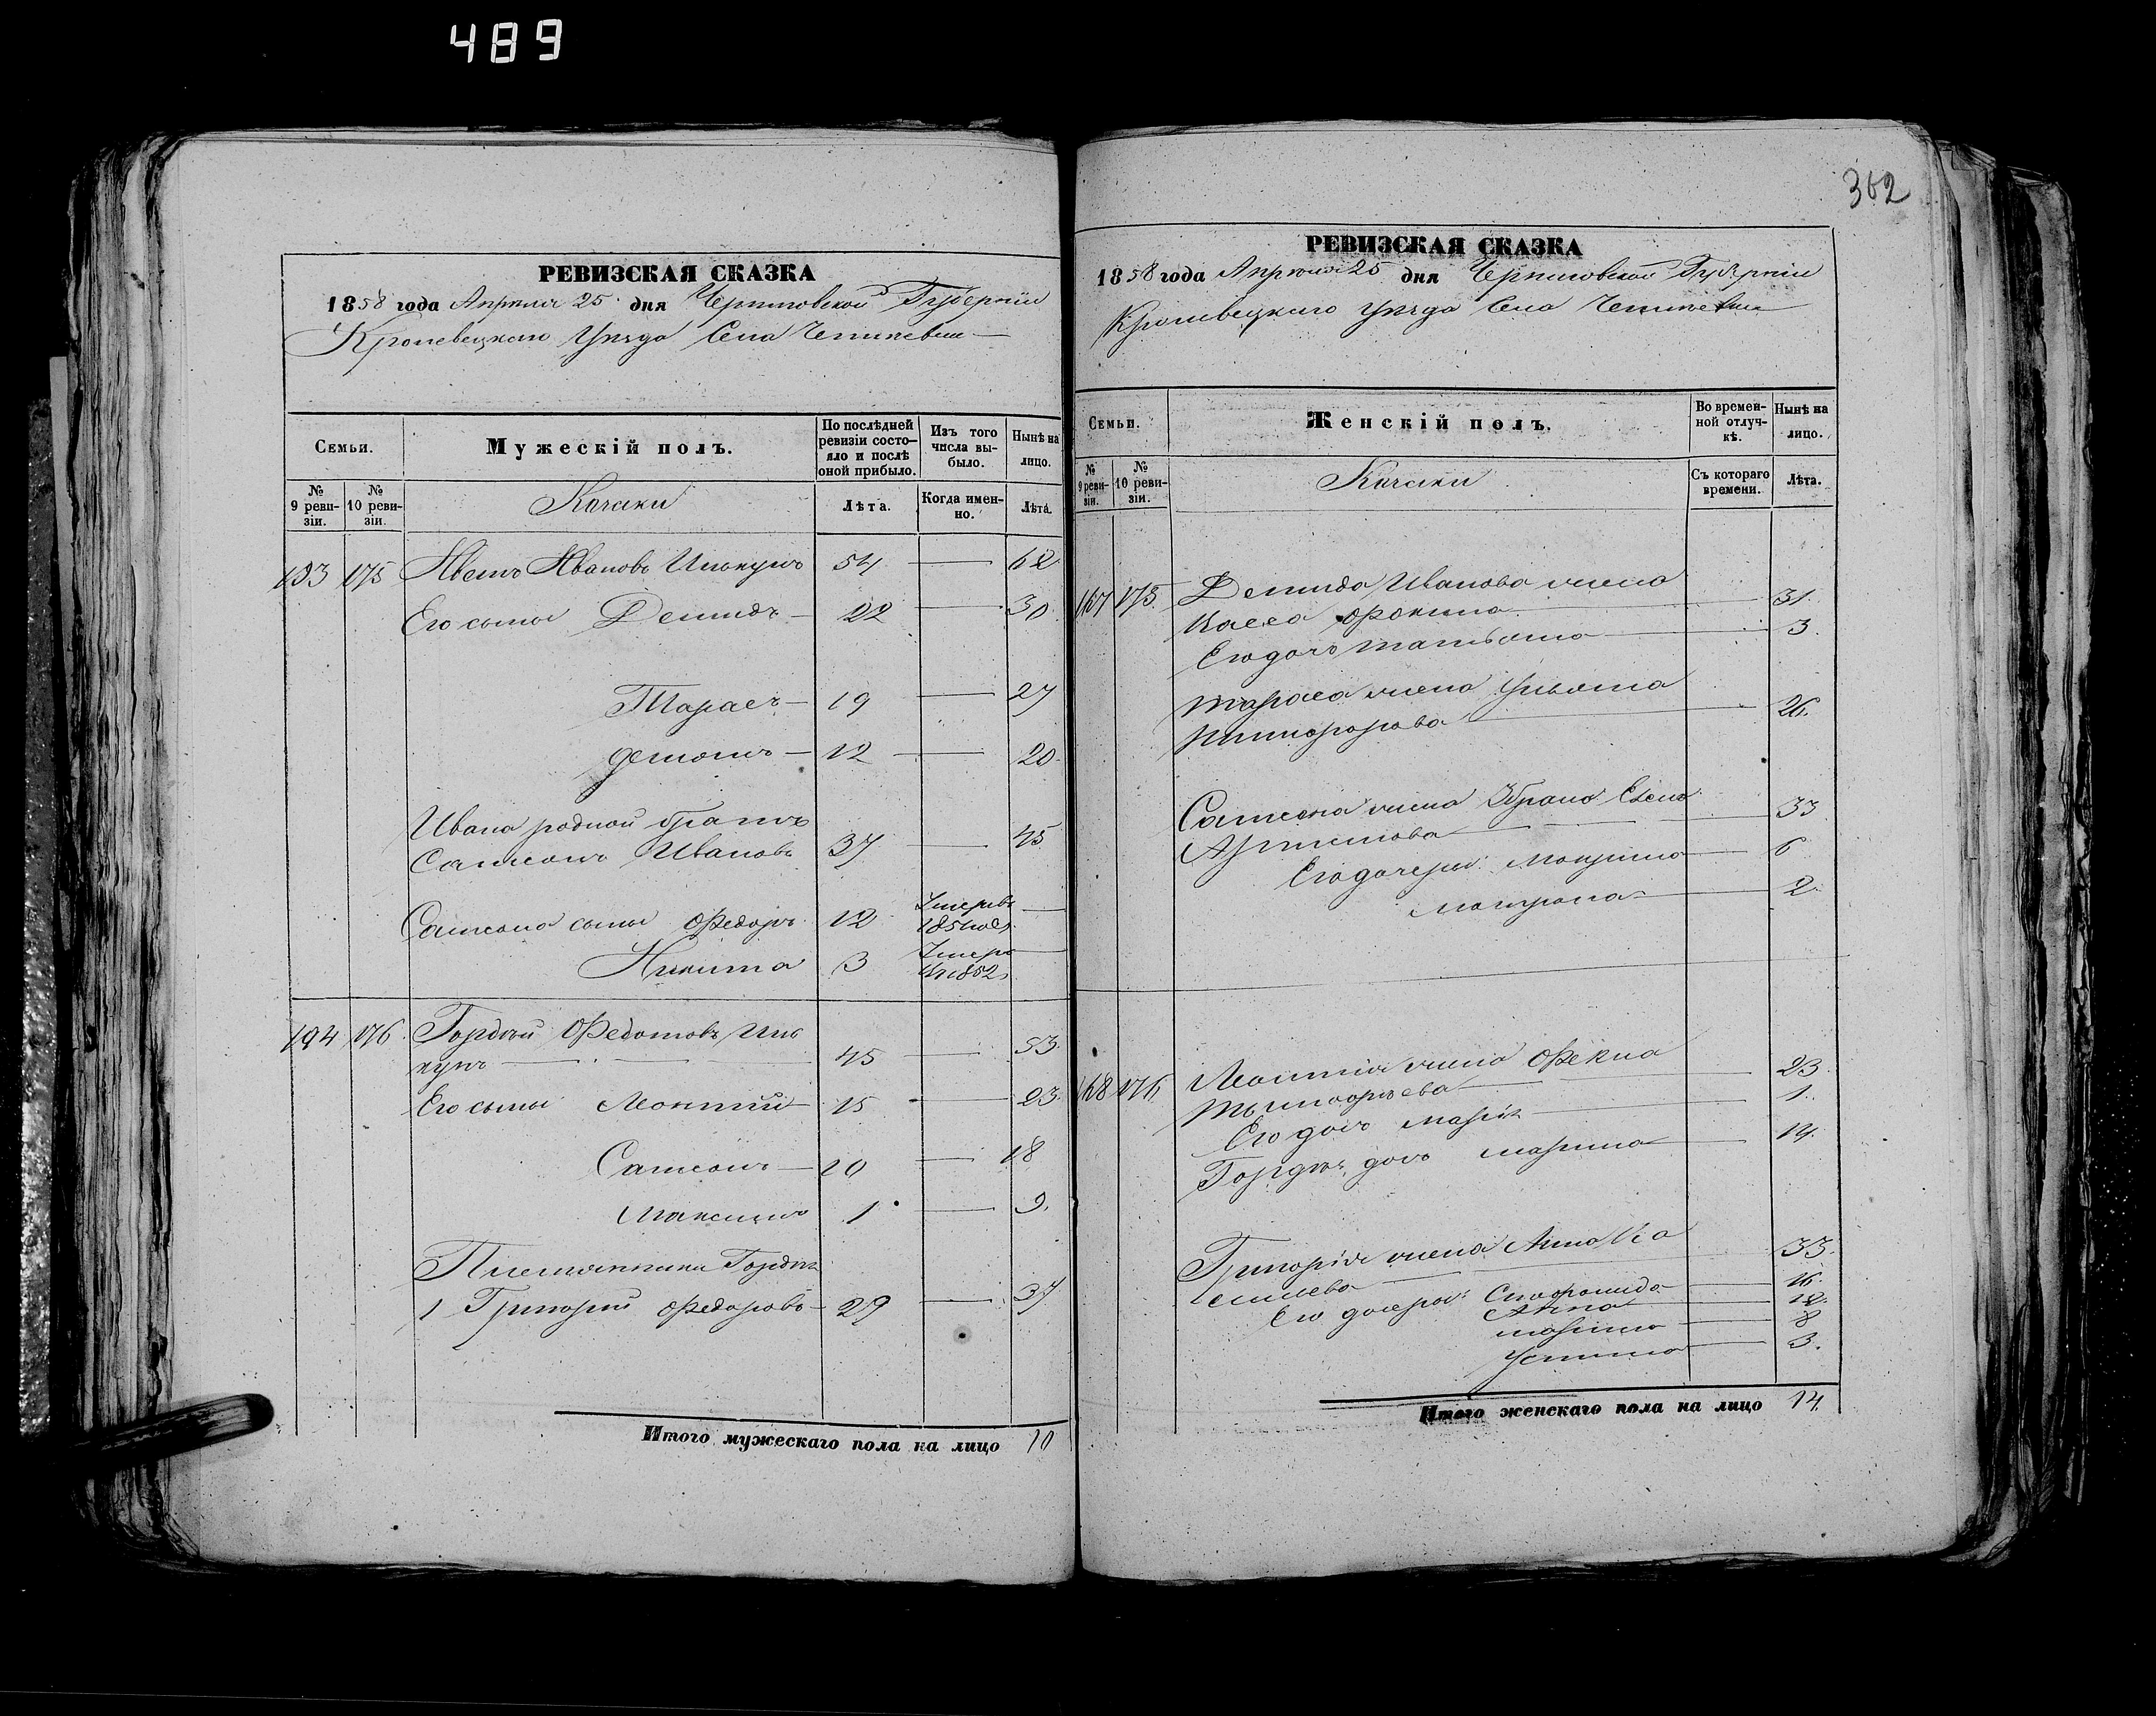 489
РЕВИЗСКАЯ СКАЗКА
1858 года Апреля 25 дня Черниговской Губернии
Кролевецкаго Уѣзда Села
Семьи.
Мужескій полъ.
По послѣдней ревизіи состояло и послѣ оной прибыло.
Изъ того числа выбыло.
Нынѣ на лицо.
№ 9 ревизіи.
№ 10 ревизіи.
Козаки
Лѣта.
Когда именно.
Лѣта.
193 175 Иванъ Ивановъ 54 — 62
Его сыны Демидъ — 22 — 30
Тарасъ — 19 — 27
12 — 20
Ивана родной братъ
Самсонъ Ивановъ 37 — 45
Самсона сыны Федоръ 12 Умеръ въ —
Никита 3 Умеръ —
въ 1852
194 176 Гордѣй Федотовъ
45 — 53
Его сыны Леонтий 15 — 23
Самсонъ — 10 — 18
Максимъ 1 — 9
Племянники Гордѣя
1 Григорий Федоровъ — 29 — 37
Итого мужескаго пола на лицо 10
362
РЕВИЗСКАЯ СКАЗКА
1858 года Апреля 25 дня Черниговской Губерніи
Кролевецкаго Уѣзда Села
Семьи.
Женскій полъ.
Во временной отлучкѣ.
Нынѣ на лицо.
№ 9 ревизіи.
№ 10 ревизіи.
Козаки
Съ котораго времени.
Лѣта.
167 175 Демида Иванова жена
— 31.
Его дочь Татьяна — 3
Тараса жена Ульяна
Никифорова — 26.
Самсона жена
— 33
Его дочери: — 6
Матрона — 2
168 176 Леонтия жена Фекла
Тимофѣева — 23
Его дочь Марія — 1.
Гордѣя дочь Марина — 14.
Григорія жена Анна Ва
сильева — 33.
Его дочери: — 16.
Анна — 12.
Марина — 8
Устина — 3.
Итого женскаго пола на лицо 14.